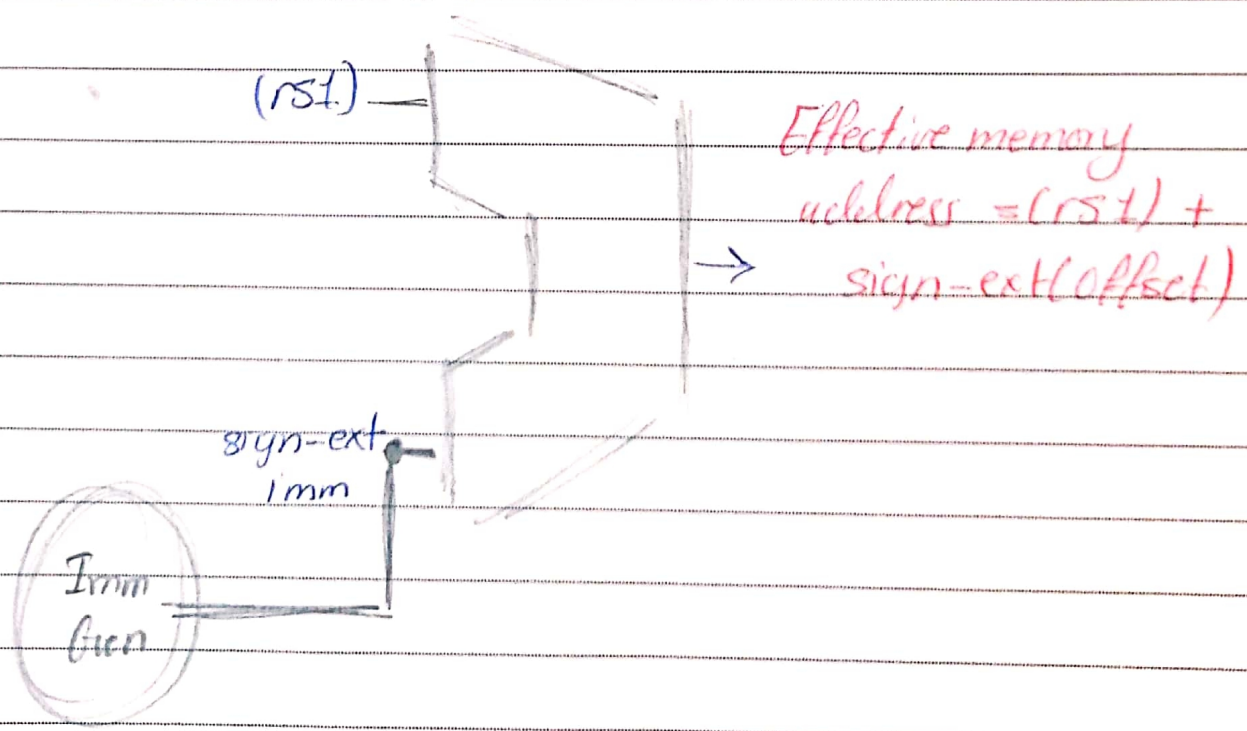 (rs1)
Effective memory
address = (rs1) +
sign-ext(offset)
sign-ext
imm
Imm
Gen